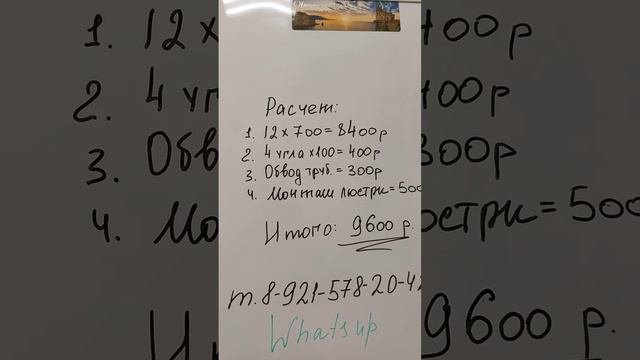 Расчет:
1. 12 x 700 = 8400р
2. 4 угла x 100 = 400р
3. Обвод труб. = 300р
4. Монтаж люстры = 500
Итого: 9600 р.
т. 8-921-578-20-42
Whatsup